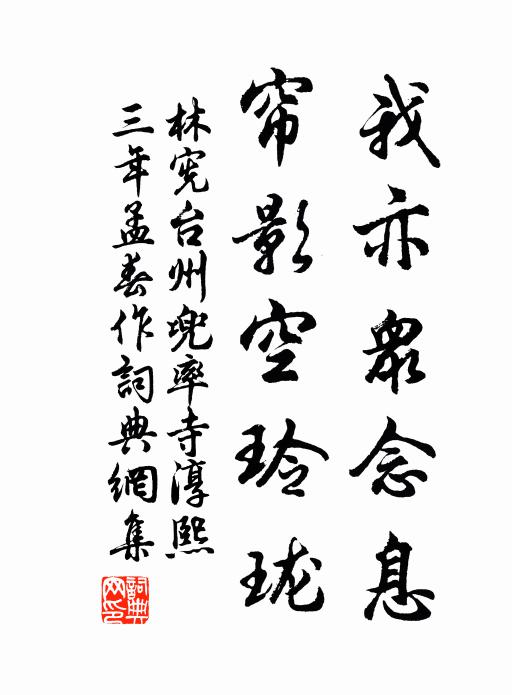 我亦眾念息
帘影空玲珑
林宪台州兜率寺淳熙
三年孟春作詞典網集
詞典网印